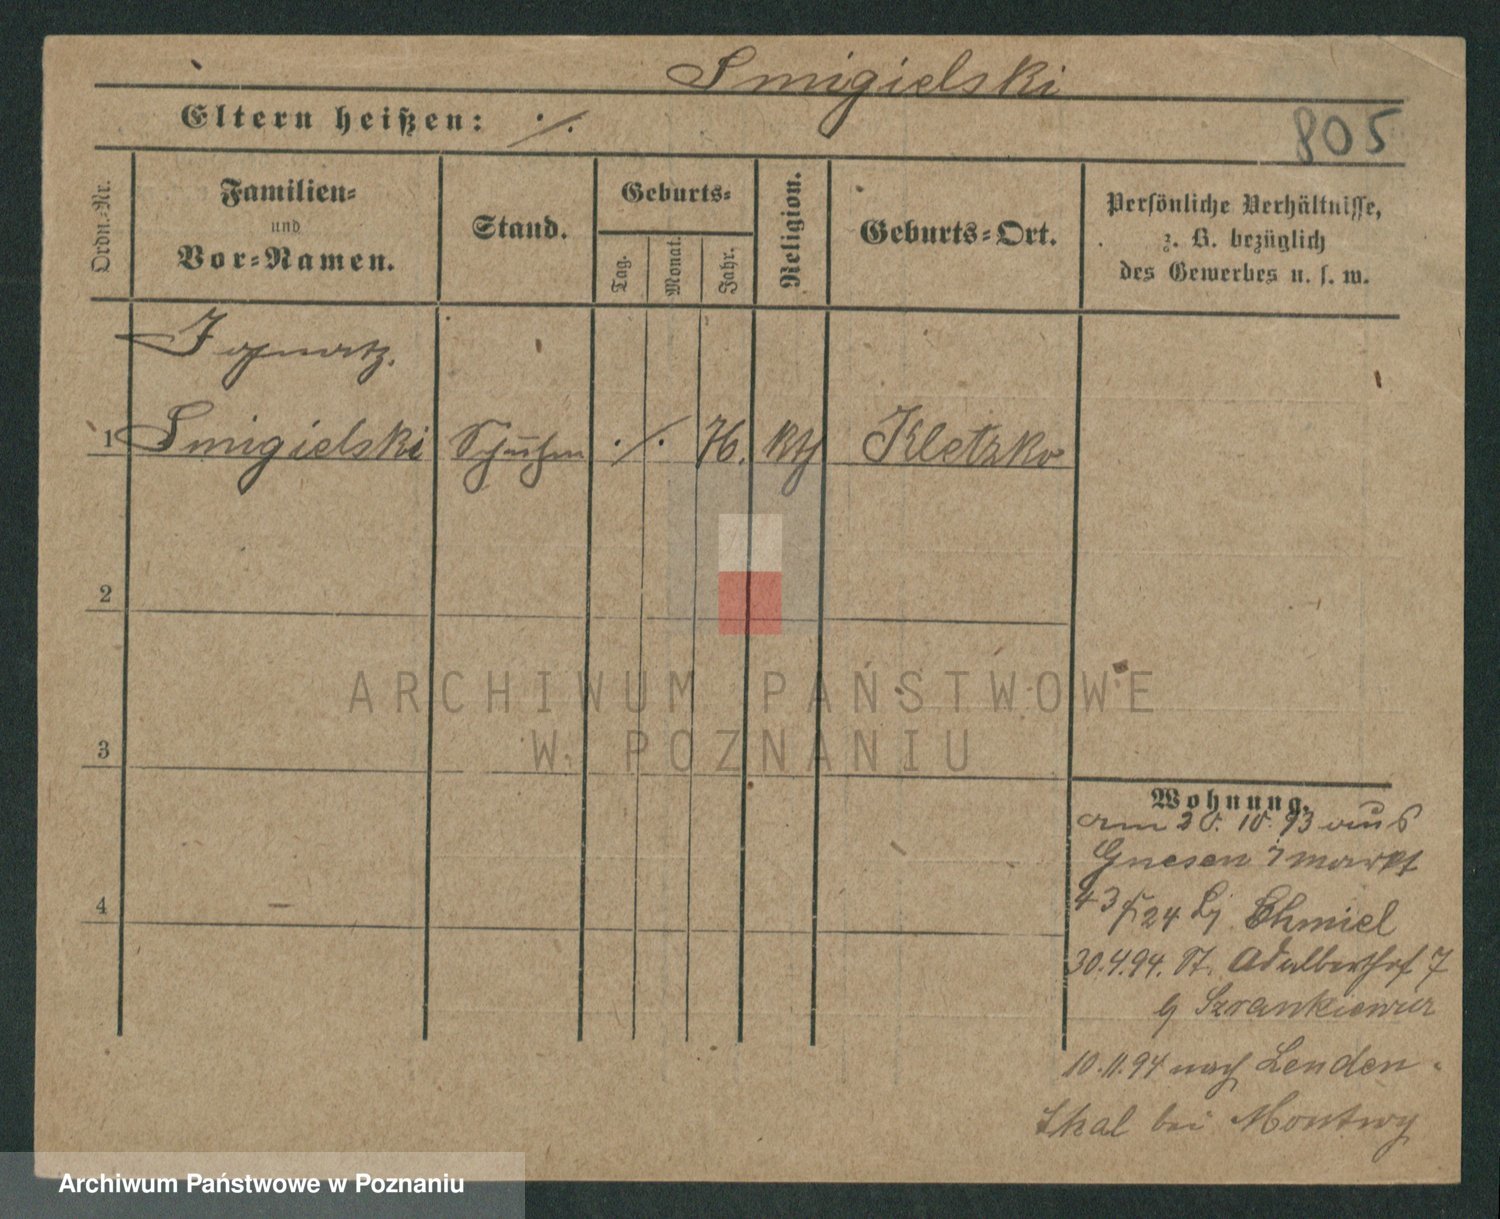 Smigielski
Eltern heißen: ./.
805
Ordn.-Nr.
Familien-
und
Vor-Namen.
Stand.
Geburts-
Tag.
Monat.
Jahr.
Religion.
Geburts-Ort.
Persönliche Verhältnisse,
z. B. bezüglich
des Gewerbes u. s. w.
Ignatz.
1 Smigielski Schuhm ./. 76. kth Kletzko
2
3
4
ARCHIWUM PAŃSTWOWE
W POZNANIU
Wohnung.
am 20. 10. 93 aus
Gnesen markt
43/24 Chmiel
30.4.94. St. Adalberthof 7
Szrankiewicz
10.11.94 nach Lenden-
thal bei Montwy
Archiwum Państwowe w Poznaniu